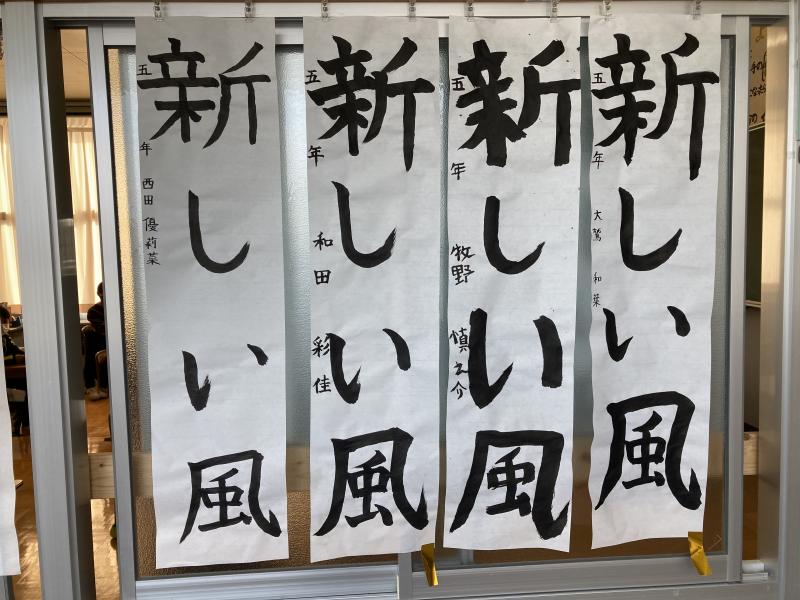 新しい風
五年 大鷲 和葉
新しい風
五年 牧野 慎之介
新しい風
五年 和田 彩佳
新しい風
五年 西田 優莉菜